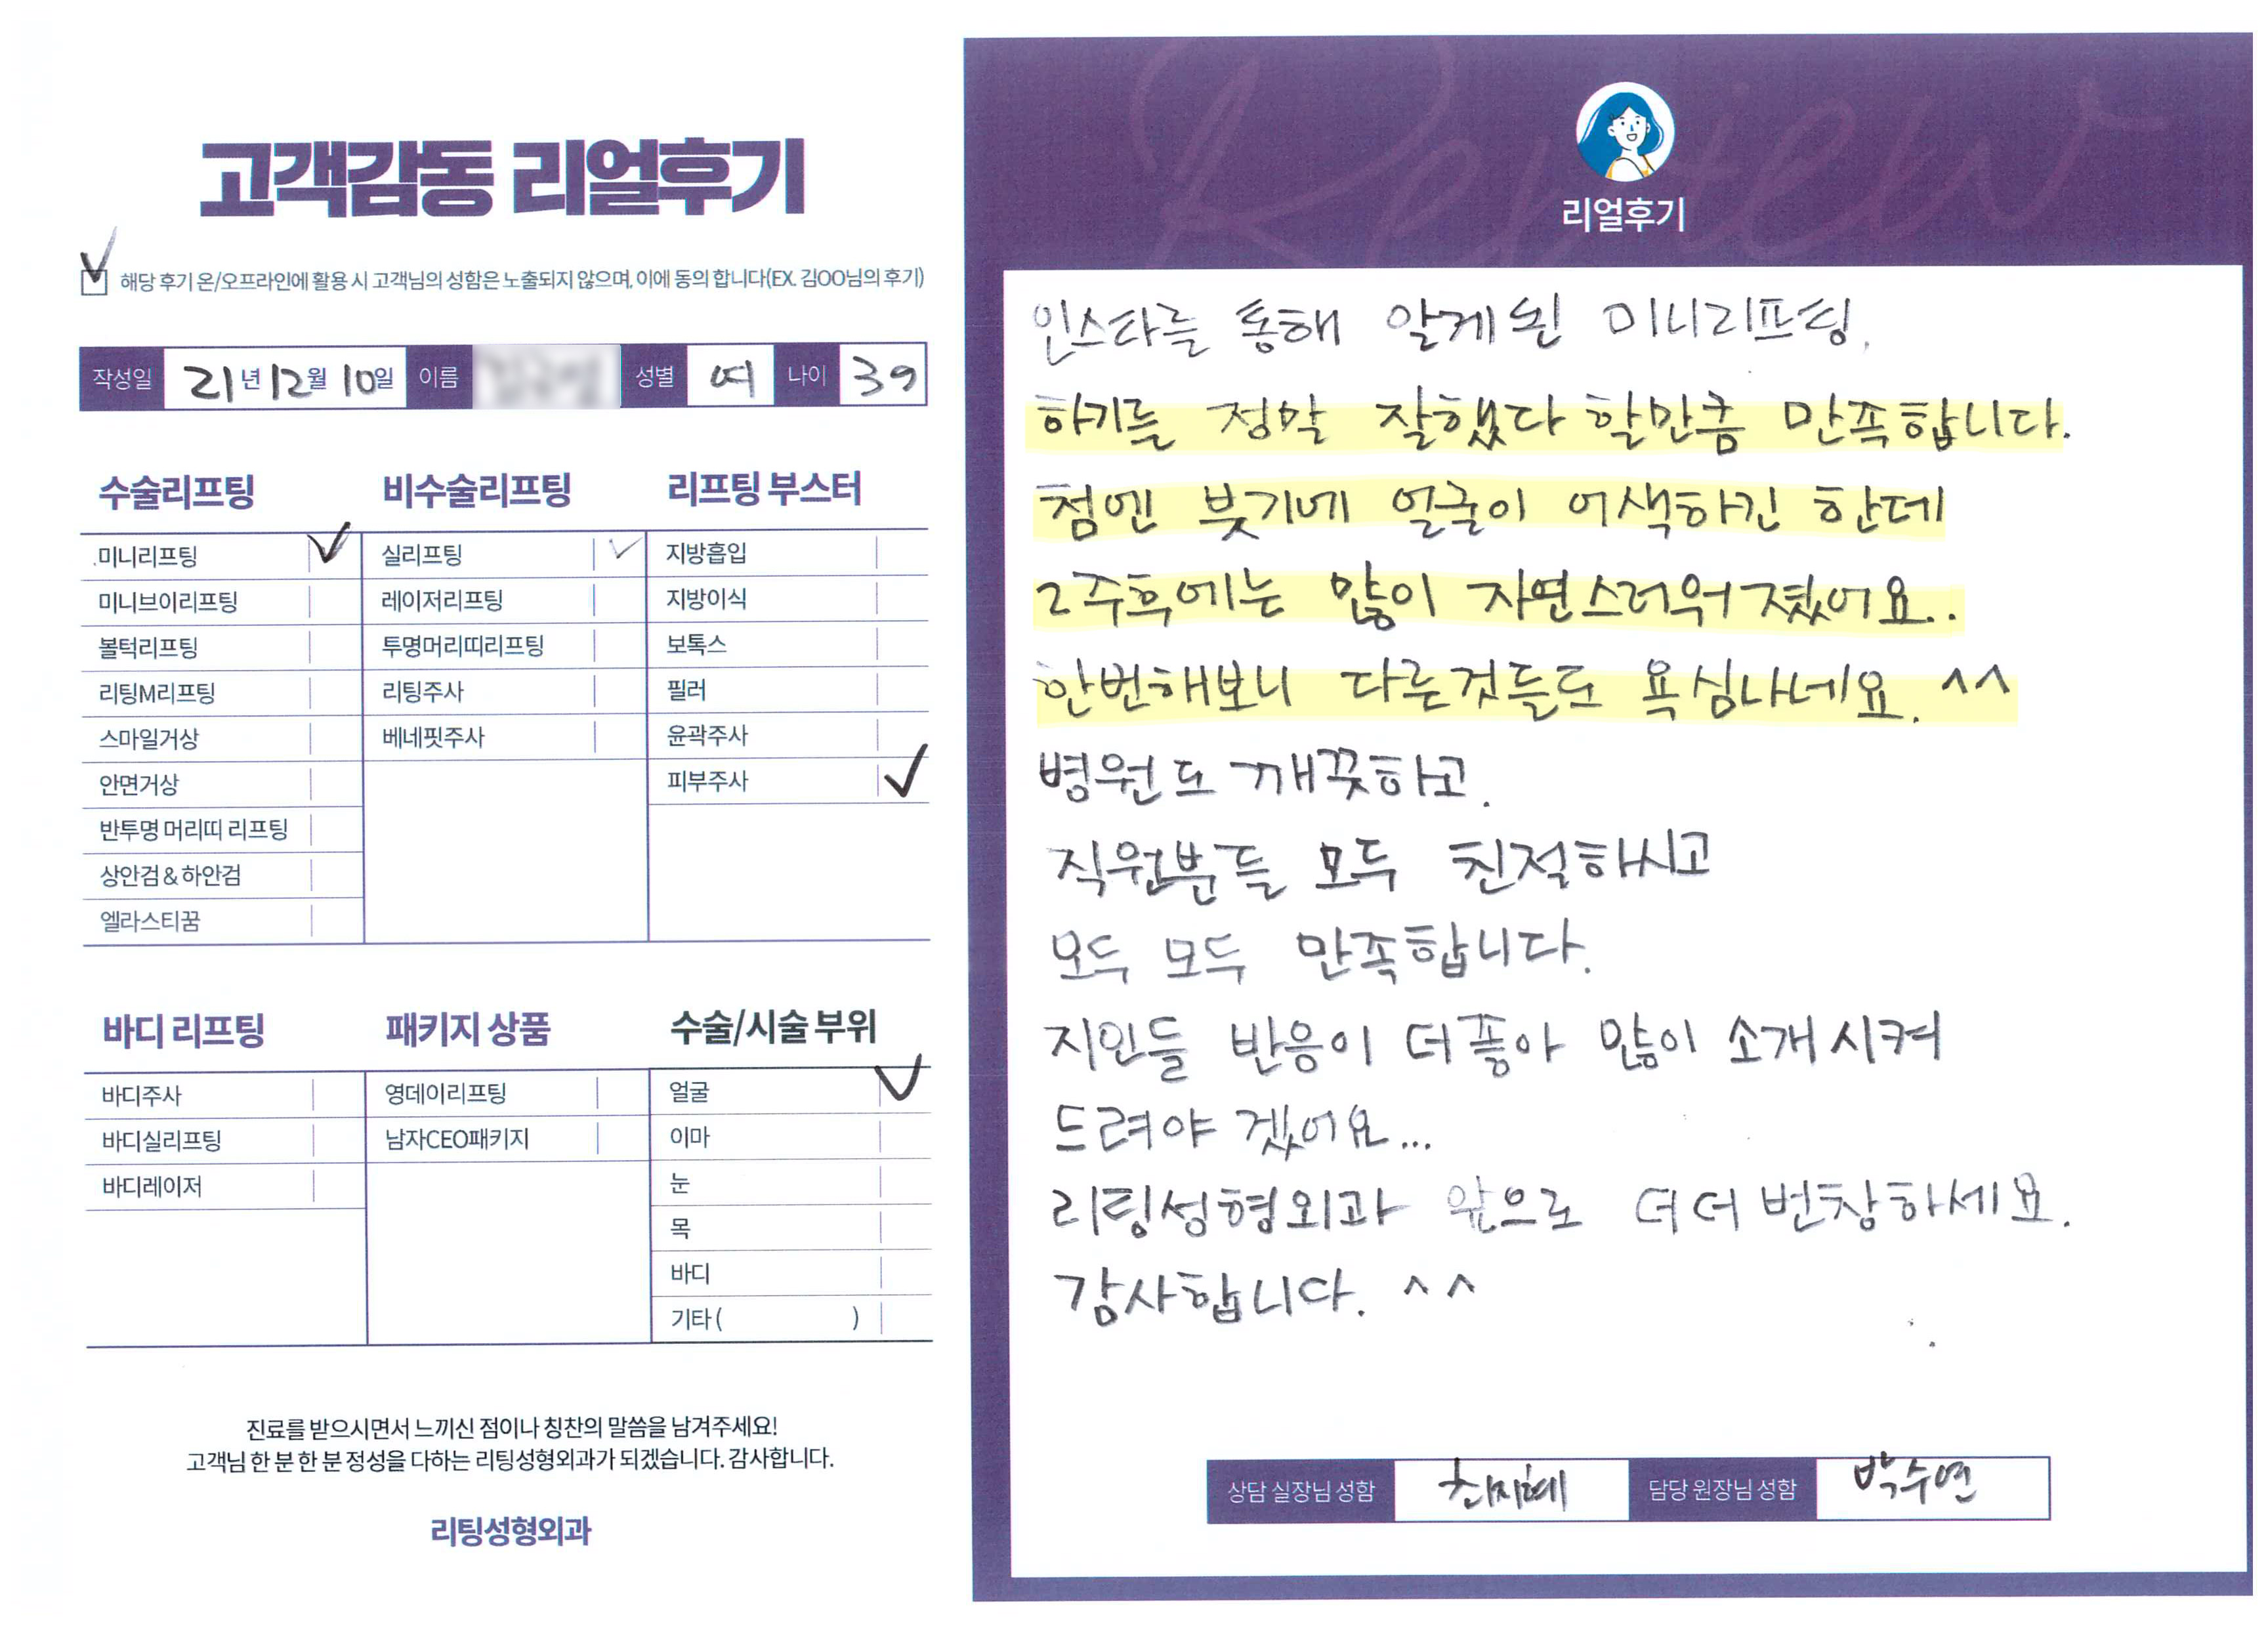 고객감동 리얼후기
해당 후기 온/오프라인에 활용 시 고객님의 성함은 노출되지 않으며, 이에 동의 합니다(EX. 김OO님의 후기)
작성일 21년 12월 10일 이름 성별 여 나이 39
수술리프팅 비수술리프팅 리프팅 부스터
미니리프팅 실리프팅 지방흡입
미니브이리프팅 레이저리프팅 지방이식
볼턱리프팅 투명머리띠리프팅 보톡스
리팅M리프팅 리팅주사 필러
스마일거상 베네핏주사 윤곽주사
안면거상 피부주사
반투명 머리띠 리프팅
상안검 & 하안검
엘라스티꿈
바디 리프팅 패키지 상품 수술/시술 부위
바디주사 영데이리프팅 얼굴
바디실리프팅 남자CEO패키지 이마
바디레이저 눈
목
바디
기타 ( )
진료를 받으시면서 느끼신 점이나 칭찬의 말씀을 남겨주세요!
고객님 한 분 한 분 정성을 다하는 리팅성형외과가 되겠습니다. 감사합니다.
리팅성형외과
Review
리얼후기
인스타를 통해 알게 된 미니리프팅.
하기를 정말 잘했다 할만큼 만족합니다.
첨엔 붓기에 얼굴이 어색하긴 한데
2주후에는 많이 자연스러워 졌어요..
한번해보니 다른것들도 욕심나네요. ^^
병원도 깨끗하고.
직원분들 모두 친절하시고
모두 모두 만족합니다.
지인들 반응이 더좋아 많이 소개시켜
드려야 겠어요...
리팅성형외과 앞으로 더더 번창하세요.
감사합니다. ^^
상담 실장님 성함 최지혜 담당 원장님 성함 박수연